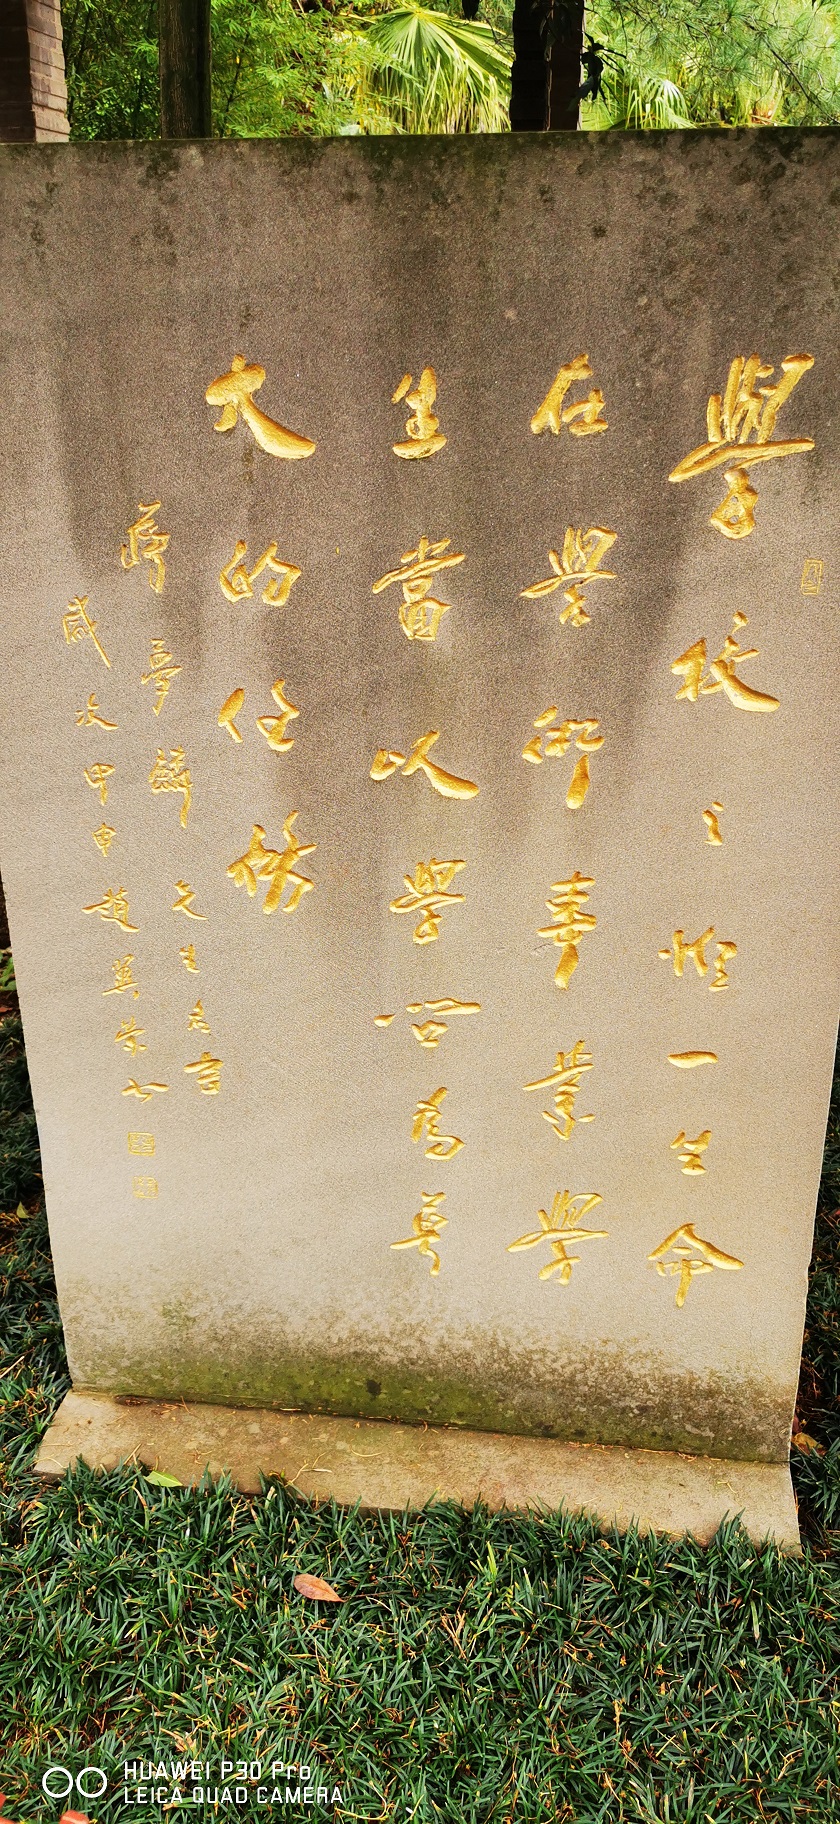 學校之惟一生命
在學術事業學
生當以學問為尊
大的任務
蔣夢麟先生名言
歲次甲申趙冀榮書
HUAWEI P30 Pro
LEICA QUAD CAMERA